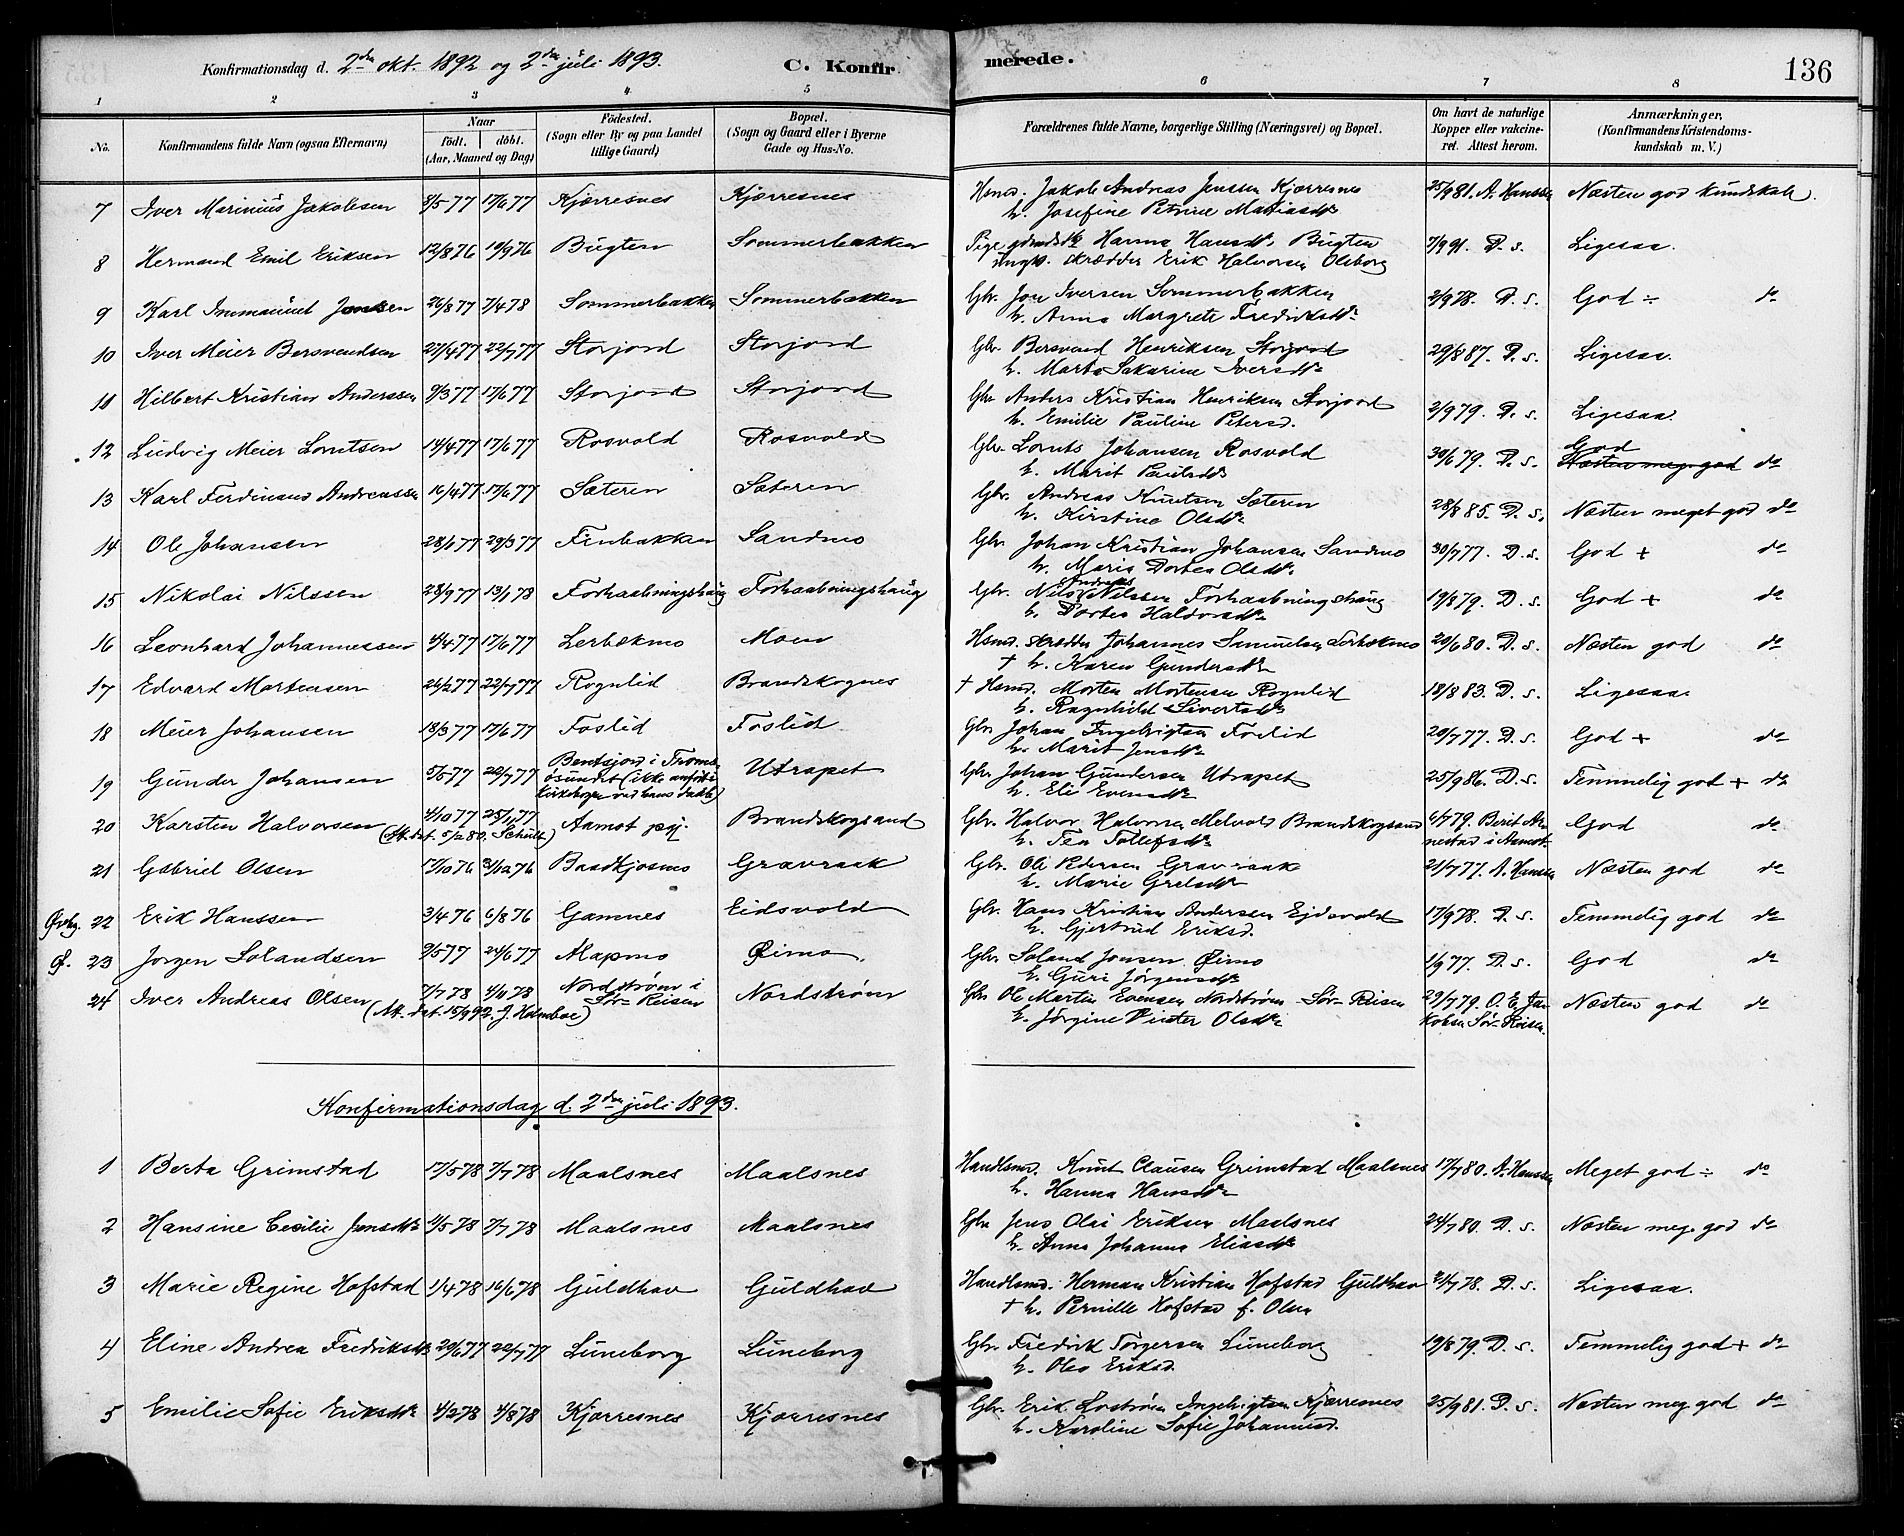 Konfirmationsdag d. 2den okt. 1892 og 2den juli 1893. C. Konfirmerede. 136
1 2 3 4 5 6 7 8
No. Konfirmandens fulde Navn (ogsaa Efternavn) Naar födt. döbt. (Aar, Maaned og Dag) Födested. (Sogn eller By og paa Landet tillige Gaard) Bopæl. (Sogn og Gaard eller i Byerne Gade og Hus-No. Forældrenes fulde Navne, borgerlige Stilling (Næringsvei) og Bopæl. Om havt de naturlige Kopper eller vakcineret. Attest herom. Anmærkninger, (Konfirmandens Kristendomskundskab m. V.)
7 Iver Marinius Jakobsen 8/5 77 17/6 77 Kjærresnes Kjærresnes Hsmd. Jakob Andreas Jenssen Kjærresnes 25/9 81. A. Hanssen Næsten god kundskab.
h. Josefine Petrine Mattiasdtr
8 Hermand Emil Eriksen 12/8 76 10/9 76 Bugten Sommerbakken Pige Hanna Hansdtr Bugten 7/9 91. D. s. Ligesaa.
Ungk. skrædder Erik Halvorsen Olsborg
9 Karl Immanuel Jonsen 26/8 77 7/4 78 Sommerbakken Sommerbakken Gbr. Jon Iversen Sommerbakken 2/9 78. D. s. God ÷ do
h. Anna Margrete Fredriksdtr
10 Iver Meier Bersvendsen 27/4 77 22/7 77 Storjord Storjord Gbr. Bersvend Henriksen Storjord 29/8 87. D. s. Ligesaa.
h. Marta Sakarine Iversdtr
11 Hilbert Kristian Anderssen 9/3 77 17/6 77 Storjord Storjord Gbr Anders Kristian Henriksen Storjord 2/9 79. D. s. Ligesaa.
h. Emilie Pauline Petersd.
12 Ludvig Meier Lorntsen 14/4 77 17/6 77 Rosvold Rosvold Gbr. Lornts Johansen Rosvold 30/6 79. D. s. God Næsten meg. god do
h. Marit Paulsdtr
13 Karl Ferdinand Andreassen 16/4 77 17/6 77 Sæteren Sæteren Gbr. Andreas Knutsen Sæteren 28/8 85. D. s. Næsten meget god do
h. Kirstine Olsdtr
14 Ole Johansen 28/1 77 29/3 77 Finbakken Sandmo Gbr. Johan Kristian Johansen Sandmo 30/7 77. D. s. God + do
h. Maria Dortea Olsdtr
15 Nikolai Nilssen 28/9 77 13/1 78 Forhaabningshaug Forhaabningshaug Gbr. Nils Andreas Nilssen Forhaabningshaug 19/8 79. D. s. God + do
h. Dortea Haldorsdtr
16 Leonhard Johannessen 4/4 77 17/6 77 Lerbækmo Moen Hsmd. skrædder Johannes Samuelsen Lerbækmo 20/6 80. D. s. Næsten god do
† h. Karen Gundersdtr
17 Edvard Mortensen 26/2 77 22/7 77 Rognlid Brandskognes † Hsmd. Morten Mortensen Rognlid 18/8 83. D. s. Ligesaa.
h. Ragnhild Sivertsdtr
18 Meier Johansen 18/3 77 17/6 77 Foslid Foslid Gbr Johan Ingebrigtsen Foslid 20/7 77. D. s. God + do
h. Marit Jensdtr
19 Gunder Johansen 5/5 77 22/7 77 Bentsjord i Tromsøsundet (ikke anført i kirkebogen ved hans daab) Utrapet Gbr Johan Gundersen Utrapet 25/9 86. D. s. Temmelig god + do
h. Eli Evensdtr
20 Karsten Halvorsen 4/10 77 25/11 77 Aamot pgj. Brandskogsand Gbr. Halvor Halvorsen Melvold Brandskogsand 6/7 79. Berit Arnestad i Aamot. God do
(Att. dat. 5/2 80. Schult) h. Tea Tollefsdtr
21 Gabriel Olsen 17/10 76 31/12 76 Baadkjosmo Gravraak Gbr. Ole Pedersen Gravraak 21/7 77. A. Hanssen Næsten god do
h. Marie Grelsdtr
Øvbg. 22 Erik Hanssen 3/4 76 6/8 76 Gamnes Eidsvold Gbr. Hans Kristian Andersen Ejdsvold 17/9 78. D. s. Temmelig god do
h. Gjertrud Eriksd.
Ø. 23 Jørgen Solandsen 9/5 77 24/6 77 Alapmo Øirmo Gbr. Soland Jonsen Øirmo 1/9 77. D. s. God do
h. Guri Jørgensdtr
24 Iver Andreas Olsen 7/7 78 4/11 78 Nordstrøm i Sør-Reisen Nordstrøm Gbr Ole Martin Evensen Nordstrøm Sør-Reisen 29/7 79. O. E. Jakobsen Sør-Reisen. Næsten god do
(Att. dat. 15/9 92. J. Holmboe) h. Jørgine Olsdtr
Konfirmationsdag d. 2den juli 1893.
1 Berta Grimstad 17/5 78 7/7 78 Maalsnes Maalsnes Handlsmd. Knut Clausen Grimstad Maalsnes 17/7 80. A. Hanssen Meget god ÷ do
h. Hanna Hansdtr
2 Hansine Cecilie Jensdtr 4/5 78 7/7 78 Maalsnes Maalsnes Gbr Jens Olai Eriksen Maalsnes 24/7 80. D. s. Næsten meg. god do
h. Anna Johanna Eliasdtr
3 Marie Regine Hofstad 1/4 78 16/6 78 Guldhav Guldhav Handlsmd. Herman Kristian Hofstad Guldhav 21/7 78. D. s. Ligesaa.
† h. Pernille Hofstad f. Olsen
4 Eline Andrea Fredriksdtr 20/6 77 22/7 77 Luneborg Luneborg Gbr. Fredrik Torgersen Luneborg 19/8 79. D. s. Temmelig god + do
h. Olea Eriksd.
5 Emilie Sofie Eriksdtr 4/2 78 4/8 78 Kjærresnes Kjærresnes Gbr. Erik Lostrøm Ingebrigtsen Kjærresnes 25/9 81. D. s. Næsten meg. god do
h. Karoline Sofie Johannesd.